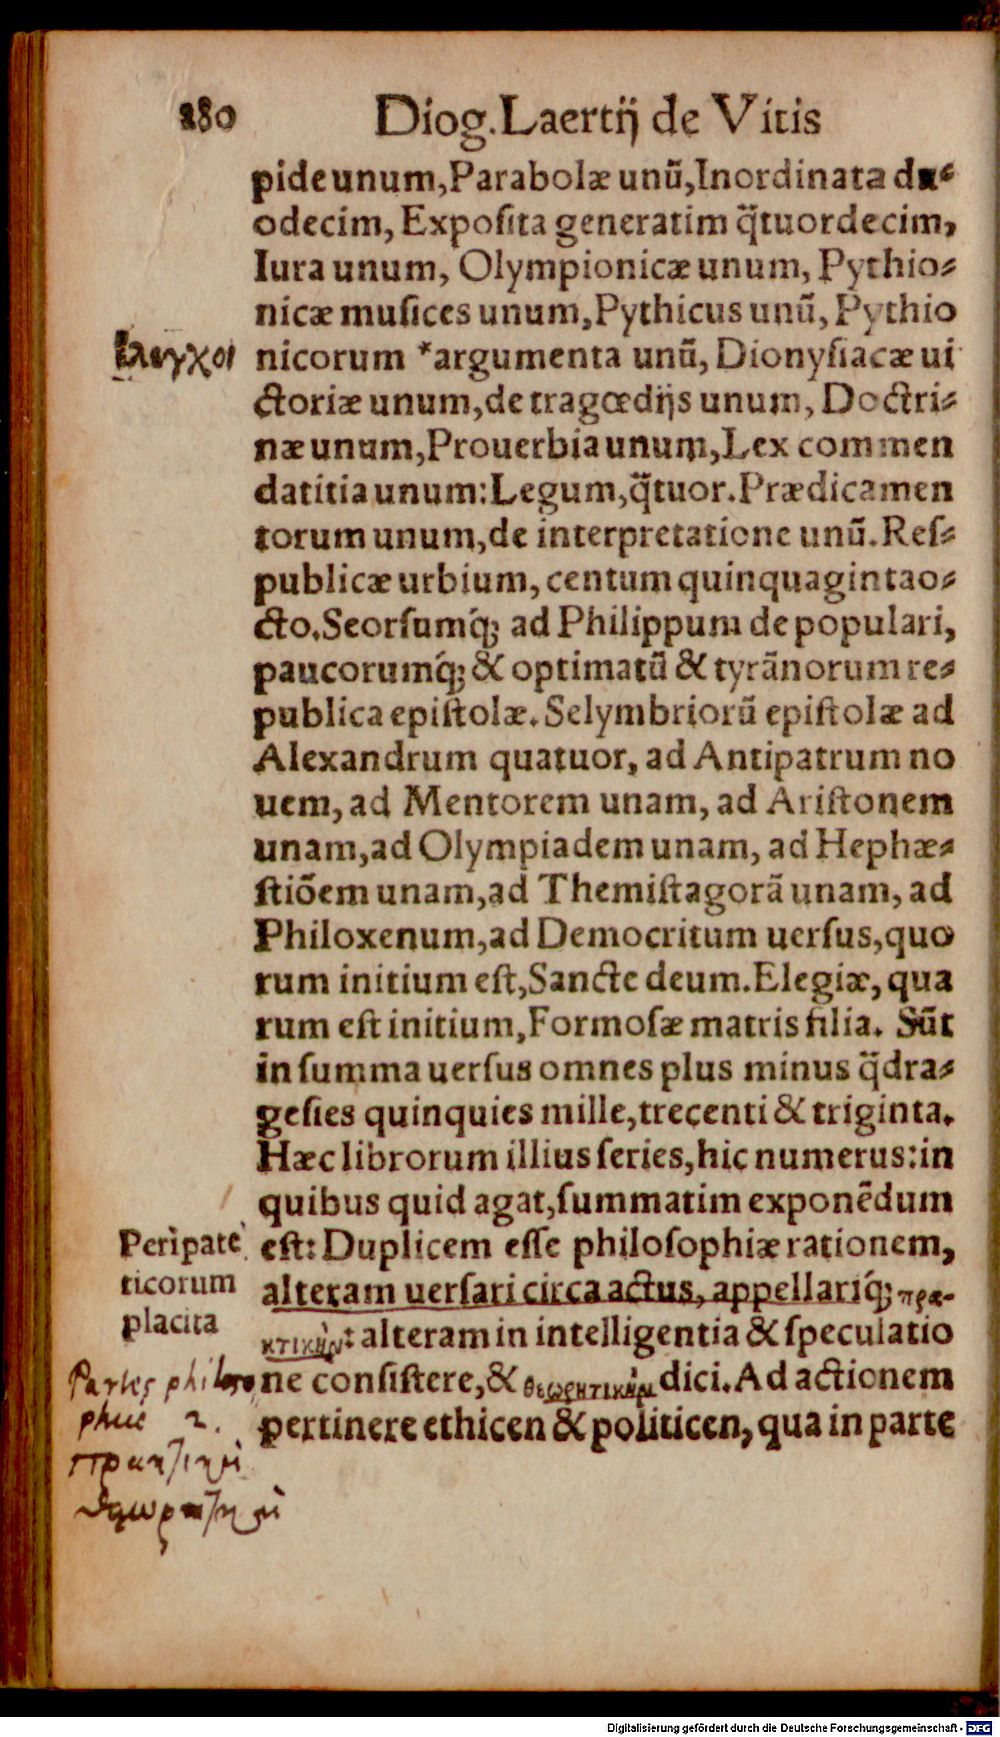 280 Diog. Laertĳ de Vitis
pide unum, Parabolæ unũ, Inordinata du⸗
odecim, Expoſita generatim q̃tuordecim,
Iura unum, Olympionicæ unum, Pythio⸗
nicæ muſices unum, Pythicus unũ, Pythio
ἔλεγχοι
nicorum *argumenta unũ, Dionyſiacæ ui
ctoriæ unum, de tragœdĳs unum, Doctri⸗
næ unum, Prouerbia unum, Lex commen
datitia unum: Legum, q̃tuor. Prædicamen
torum unum, de interpretatione unũ. Reſ⸗
publicæ urbium, centum quinquaginta o⸗
cto. Seorſumq́; ad Philippum de populari,
paucorumq́; & optimatũ & tyrãnorum re⸗
publica epiſtolæ. Selymbriorũ epiſtolæ ad
Alexandrum quatuor, ad Antipatrum no
uem, ad Mentorem unam, ad Ariſtonem
unam, ad Olympiadem unam, ad Hephæ⸗
ſtiõem unam, ad Themiſtagorã unam, ad
Philoxenum, ad Democritum uerſus, quo
rum initium eſt, Sancte deum. Elegiæ, qua
rum eſt initium, Formoſæ matris filia. Sũt
in ſumma uerſus omnes plus minus q̃dra⸗
geſies quinquies mille, trecenti & triginta.
Hæc librorum illius ſeries, hic numerus: in
quibus quid agat, ſummatim exponẽdum
Peripate
ticorum
placita
eſt: Duplicem eſſe philoſophiæ rationem,
alteram uerſari circa actus, appellariq́; πρα-
κτικὴν: alteram in intelligentia & ſpeculatio
ne conſiſtere, & θεωρητικὴν dici. Ad actionem
pertinere ethicen & politicen, qua in parte
Partes philoso
phiæ 2.
πρακτικὴ
θεωρητικὴ
Digitalisierung gefördert durch die Deutsche Forschungsgemeinschaft - DFG